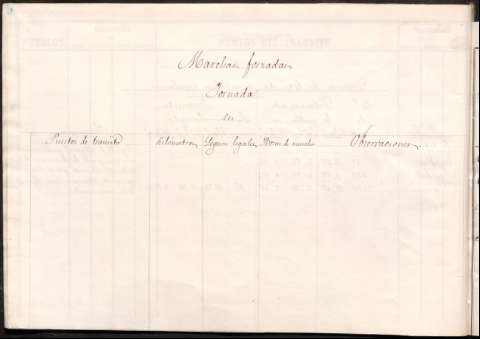 Marchas forzadas
Jornada
de
Puntos de transito kilometros Leguas legales Horas de marcha Observaciones